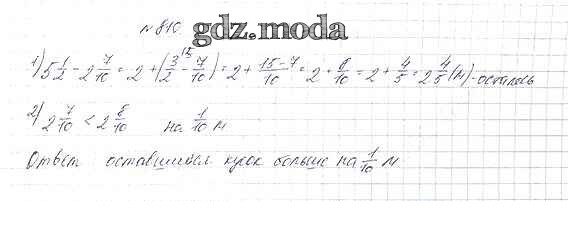 № 810 gdz.moda
1) 5 1/2 - 2 7/10 = 2 + (3/2 - 7/10) = 2 + 15-7/10 = 2 + 8/10 = 2 + 4/5 = 2 4/5 (м) - осталось
2) 2 7/10 < 2 8/10 на 1/10 м
Ответ оставшийся кусок больше на 1/10 м